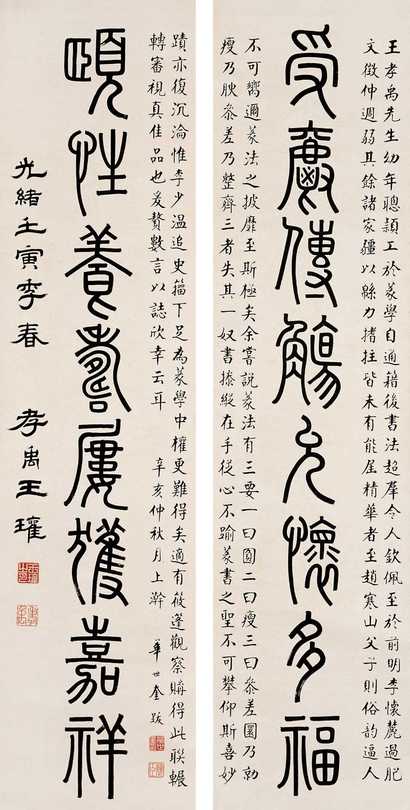 受釐傳觴允懷多福
王孝禹先生幼年聰穎工於篆學自通籍後書法超羣今人欽佩至於前明李懷麓過肥
文徵仲週弱其餘諸家疆以緜力揩拄皆未有能崖精華者至趙寒山父子則俗韵逼人
不可嚮邇篆法之披靡至斯極矣余喜說篆法有三要一曰圓二曰瘦三曰參差圓乃勁
瘦乃腴參差乃整齊三者失其一奴書捺縱在手從心不踰篆書之聖不可攀仰斯喜妙
頤性養壽屢獲嘉祥
蹟亦復沉淪惟李少温追史籀下足為篆學中權更難得矣適有筱蓬觀察購得此聯輾
轉審視真佳品也爰贅數言以誌欣幸云耳 辛亥仲秋月上澣 華世奎跋
光緒壬寅季春 孝禹王瓘